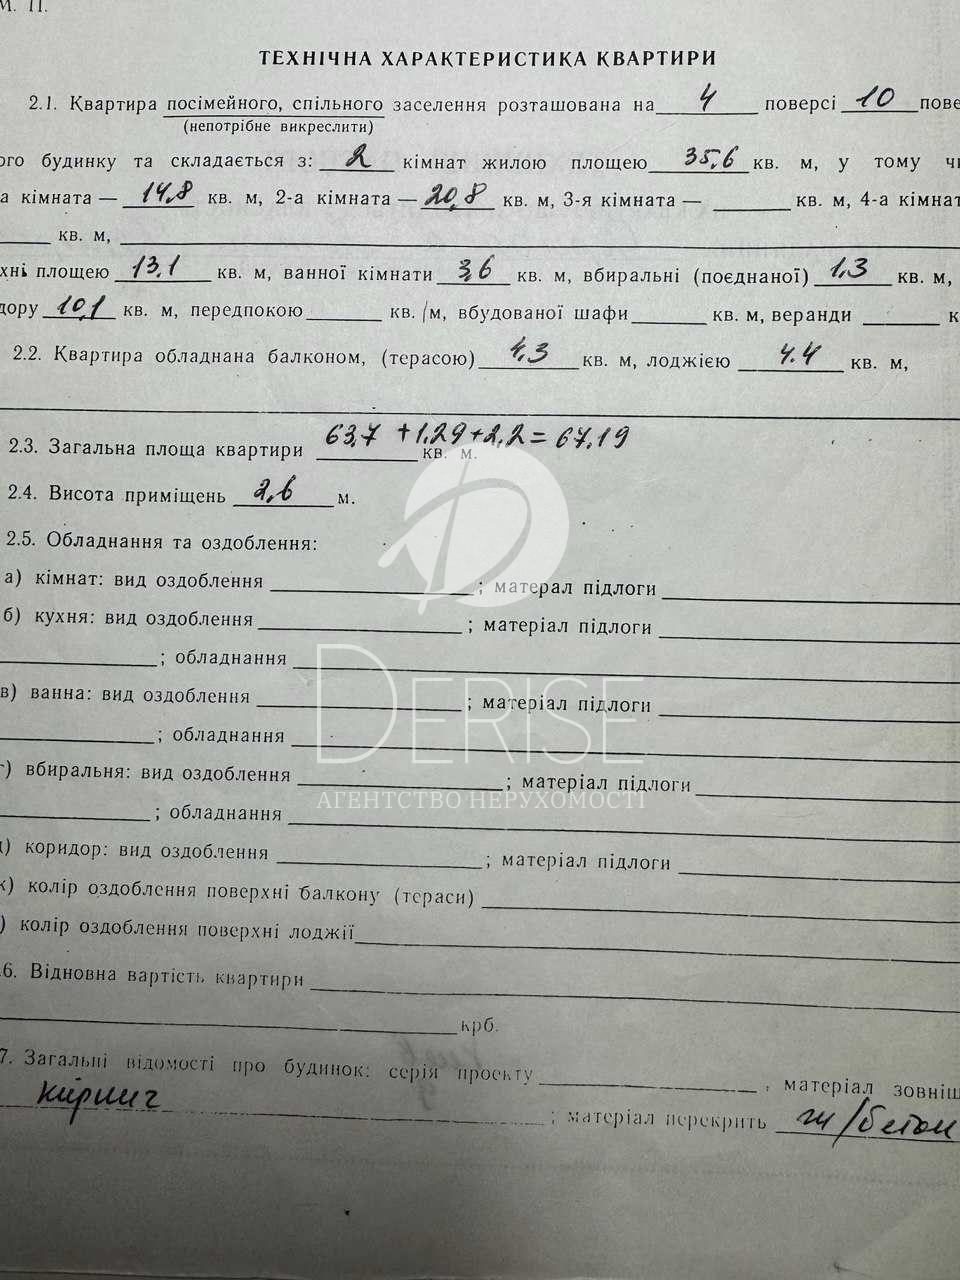 М. П.
ТЕХНІЧНА ХАРАКТЕРИСТИКА КВАРТИРИ
2.1. Квартира посімейного, спільного заселення розташована на 4 поверсі 10 пове
(непотрібне викреслити)
ого будинку та складається з: 2 кімнат жилою площею 35,6 кв. м, у тому чи
а кімната — 14,8 кв. м, 2-а кімната — 20,8 кв. м, 3-я кімната — кв. м, 4-а кімнат
кв. м,
хні площею 13,1 кв. м, ванної кімнати 3,6 кв. м, вбиральні (поєднаної) 1,3 кв. м,
дору 10,1 кв. м, передпокою кв. м, вбудованої шафи кв. м, веранди к
2.2. Квартира обладнана балконом, (терасою) 4.3 кв. м, лоджією 4.4 кв. м,
2.3. Загальна площа квартири 63,7 + 1.29 + 2,2 = 67.19 кв. м.
2.4. Висота приміщень 2,6 м.
2.5. Обладнання та оздоблення:
а) кімнат: вид оздоблення ; матерал підлоги
б) кухня: вид оздоблення ; матеріал підлоги
; обладнання
в) ванна: вид оздоблення ; матеріал підлоги
; обладнання
г) вбиральня: вид оздоблення ; матеріал підлоги
; обладнання
д) коридор: вид оздоблення ; матеріал підлоги
ж) колір оздоблення поверхні балкону (тераси)
) колір оздоблення поверхні лоджії
.6. Відновна вартість квартири
крб.
7. Загальні відомості про будинок: серія проекту , матеріал зовніш
кирпич ; матеріал перекрить ж/бетон
DERISE
АГЕНТСТВО НЕРУХОМОСТІ